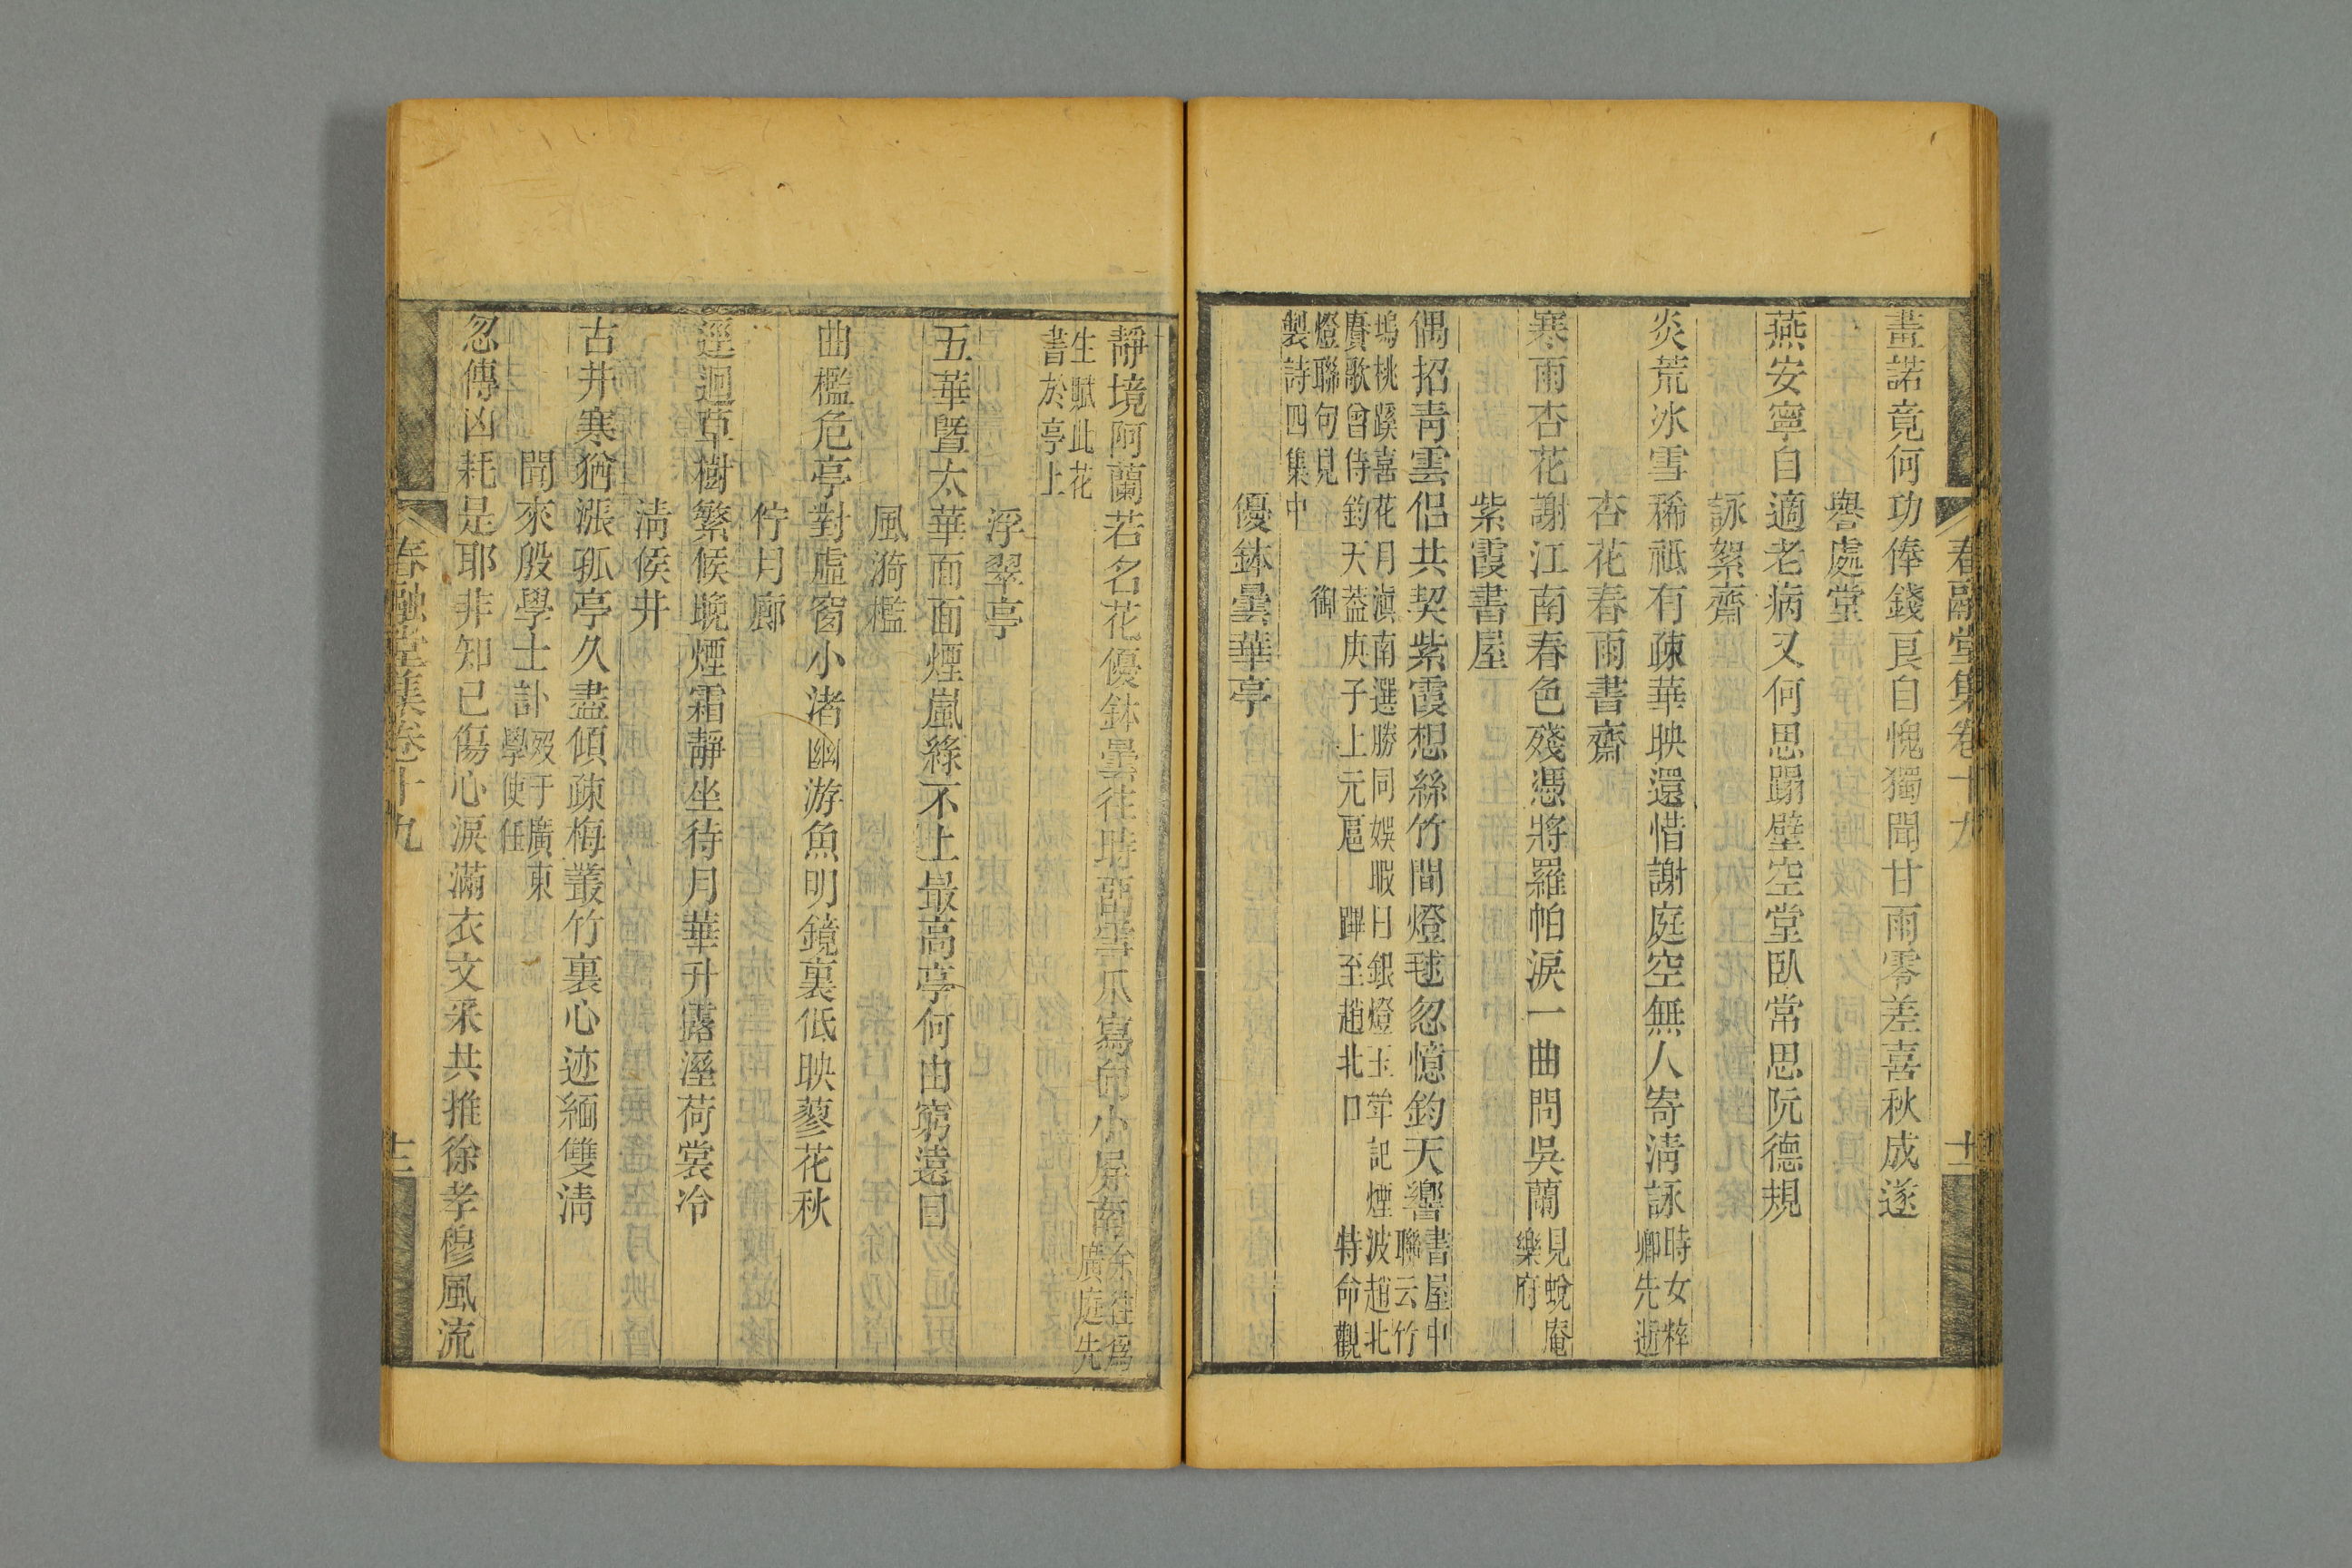 春融堂集卷十九
十二
畫諾竟何功俸錢良自愧獨聞甘雨零差喜秋成遂
譽處堂
燕安寧自適老病又何思蹋壁空堂臥常思阮德規
詠絮齋
炎荒冰雪稀祗有疎華映還惜謝庭空無人寄清詠時女粹
卿先逝
杏花春雨書齋
寒雨杏花謝江南春色殘憑將羅帕淚一曲問吳蘭見蛻庵
樂府
紫霞書屋
偶招青雲侶共契紫霞想絲竹間燈毬忽憶鈞天響書屋中
聯云竹
塢桃蹊喜花月滇南選勝同娛暇日銀燈玉 記煙波趙北
賡歌曾侍鈞天葢庚子上元扈 蹕至趙北口 特命觀
燈聯句見 御
製詩四集中
優鉢曇華亭
靜境阿蘭若名花優鉢曇往時 雪爪寫句小屏南余在爲
廣庭先
生賦此花
書於亭上
浮翠亭
五華暨太華面面煙嵐綠不上最高亭何由窮遠目
風漪檻
曲檻危亭對虛窗小渚幽游魚明鏡裏低映蓼花秋
佇月廊
逕迴草樹繁候晚煙霜靜坐待月華升露溼荷裳冷
清候井
古井寒猶漲孤亭久盡傾疎梅叢竹裏心迹緬雙清
聞來殷學士訃歿于廣東
學使任
忽傳凶耗是耶非知已傷心淚滿衣文采共推徐孝穆風流
春融堂集卷十九
十三